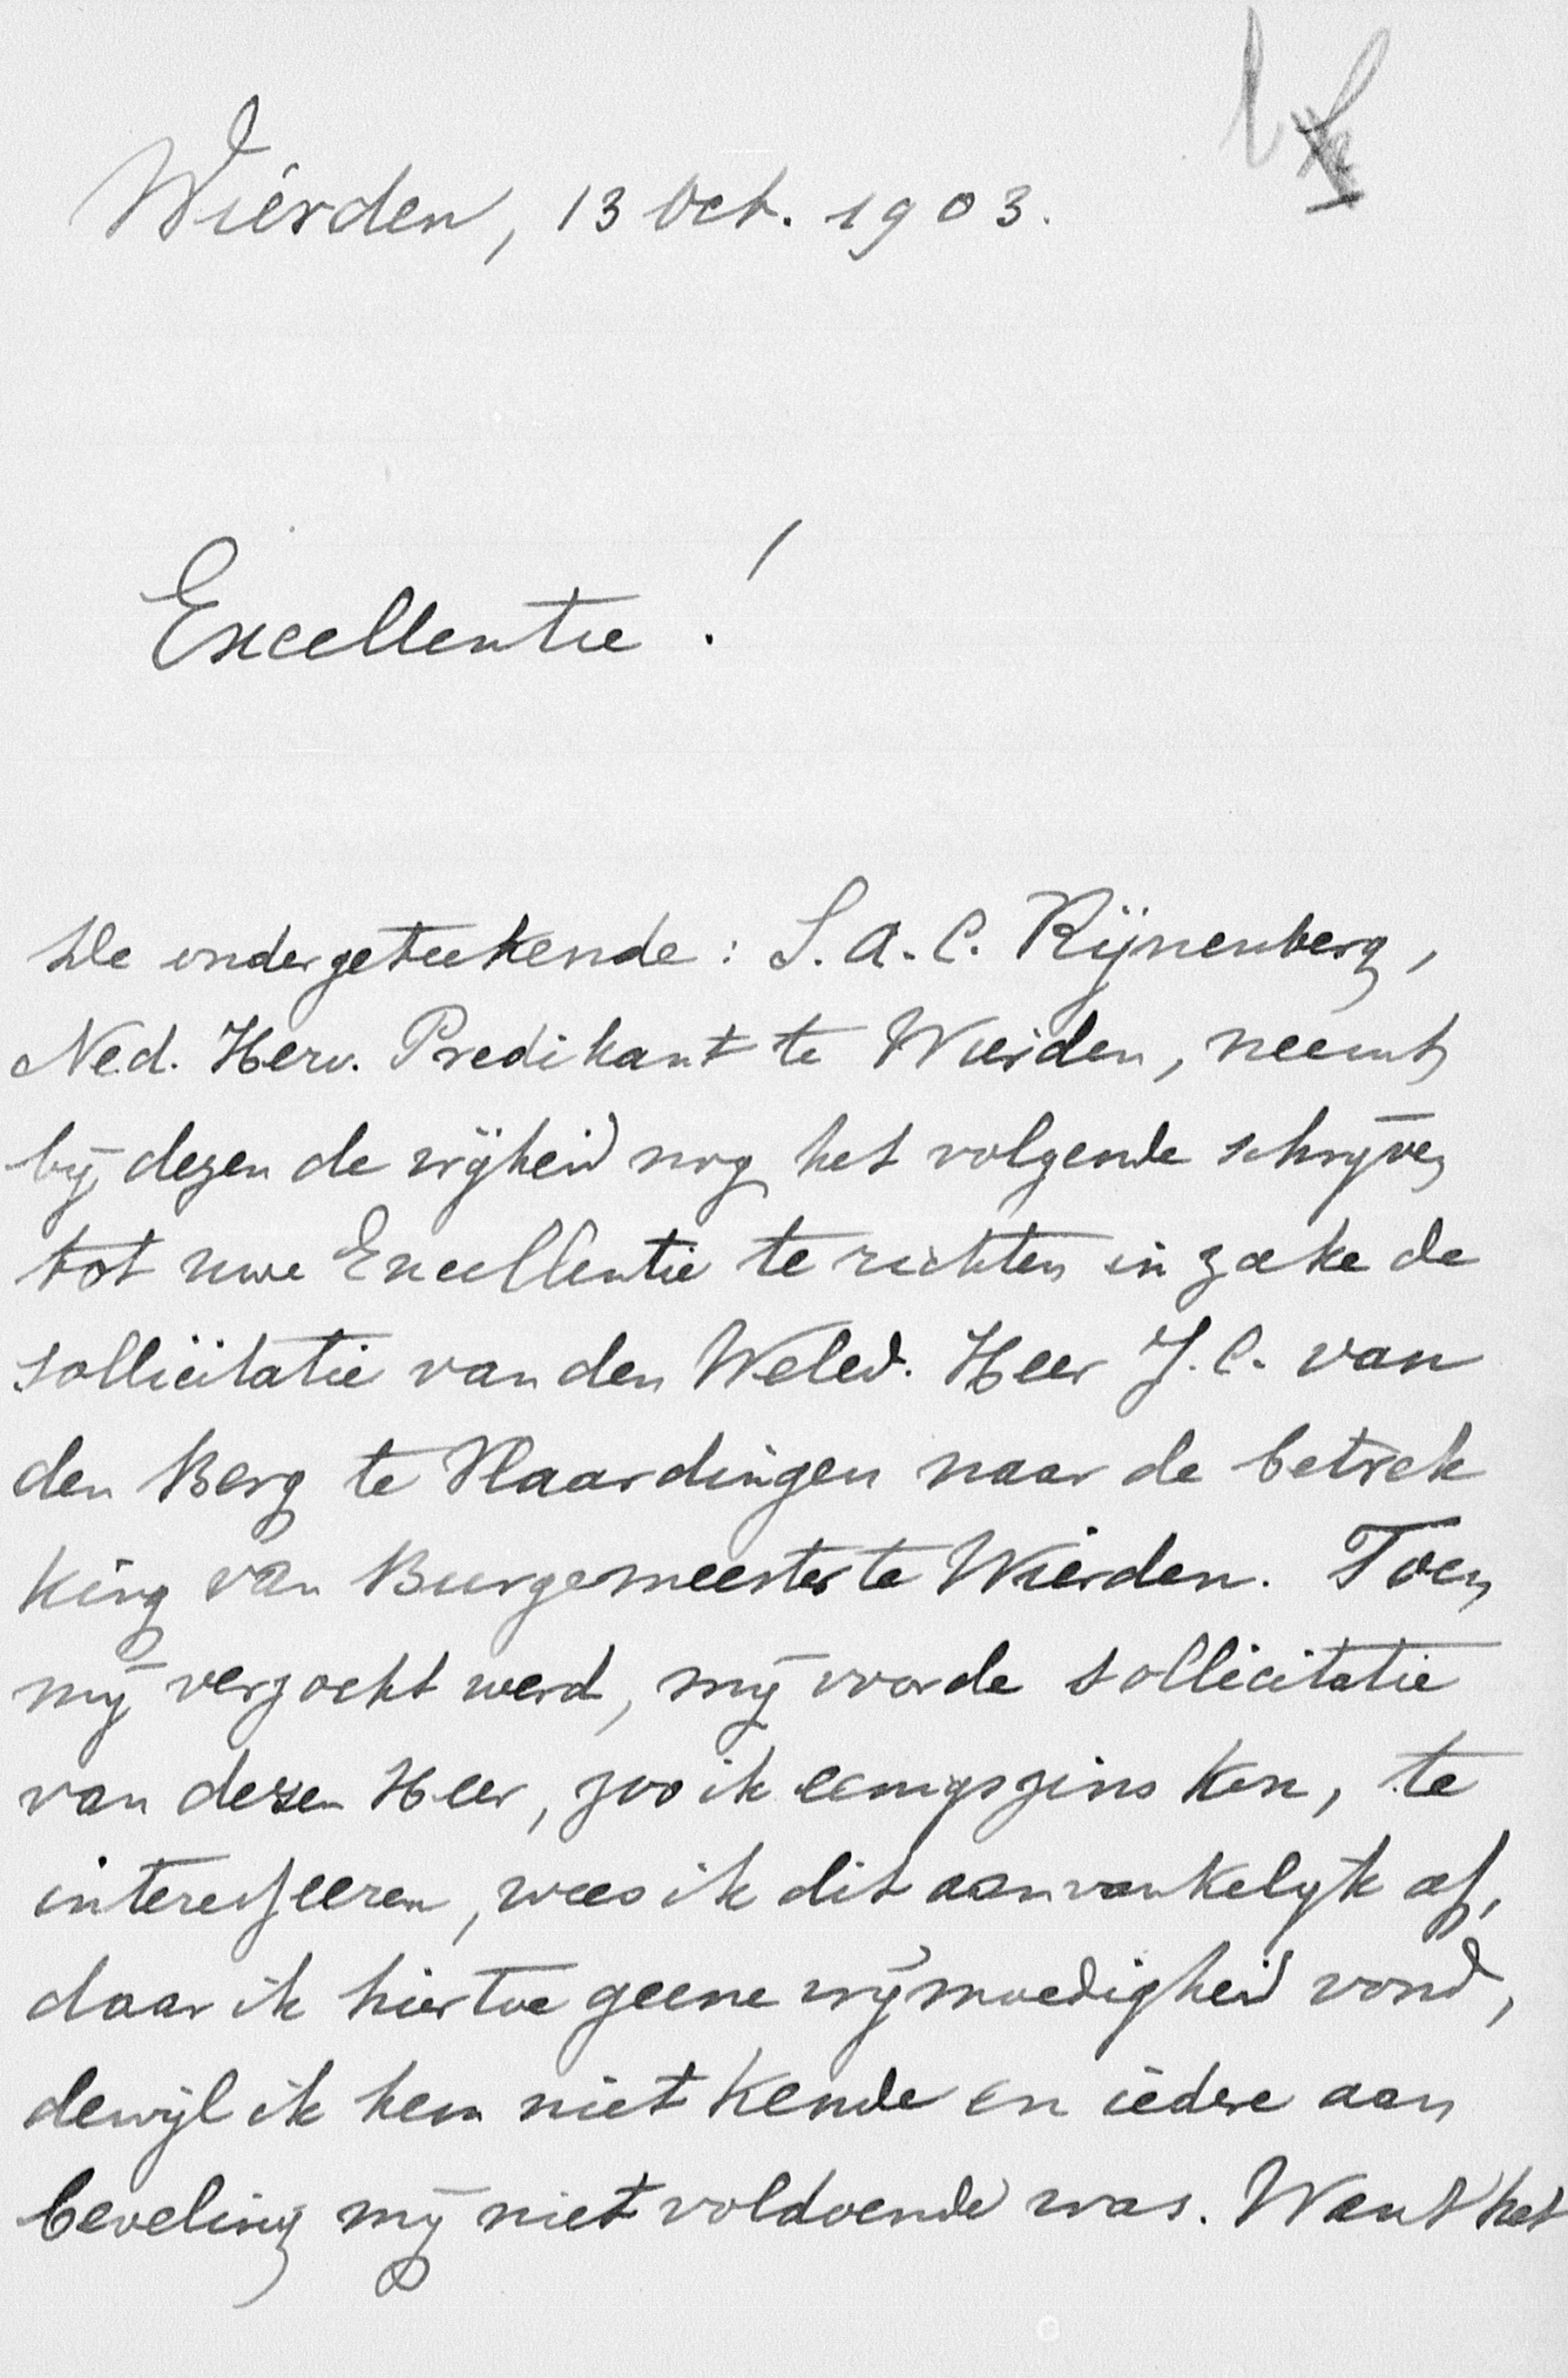 Wierden, 13 Oct. 1903.
Excellentie!
De ondergeteekende: S. A. C. Rijnenberg,
Ned. Herv. Predikant te Wierden, neemt
bij dezen de vrijheid nog het volgende schrijven
tot uwe Excellentie te richten in zake de
sollicitatie van den Weled. Heer J. C. van
den Berg te Vlaardingen naar de betrek
king van Burgemeester te Wierden. Toen
mij verzocht werd, mij voor de sollicitatie
van dezen Heer, zoo ik eenigszins kon, te
interesseeren, wees ik dit aanvankelijk af,
daar ik hiertoe geene vrijmoedigheid vond,
dewijl ik hem niet kende en iedere aan
beveling mij niet voldoende was. Want het